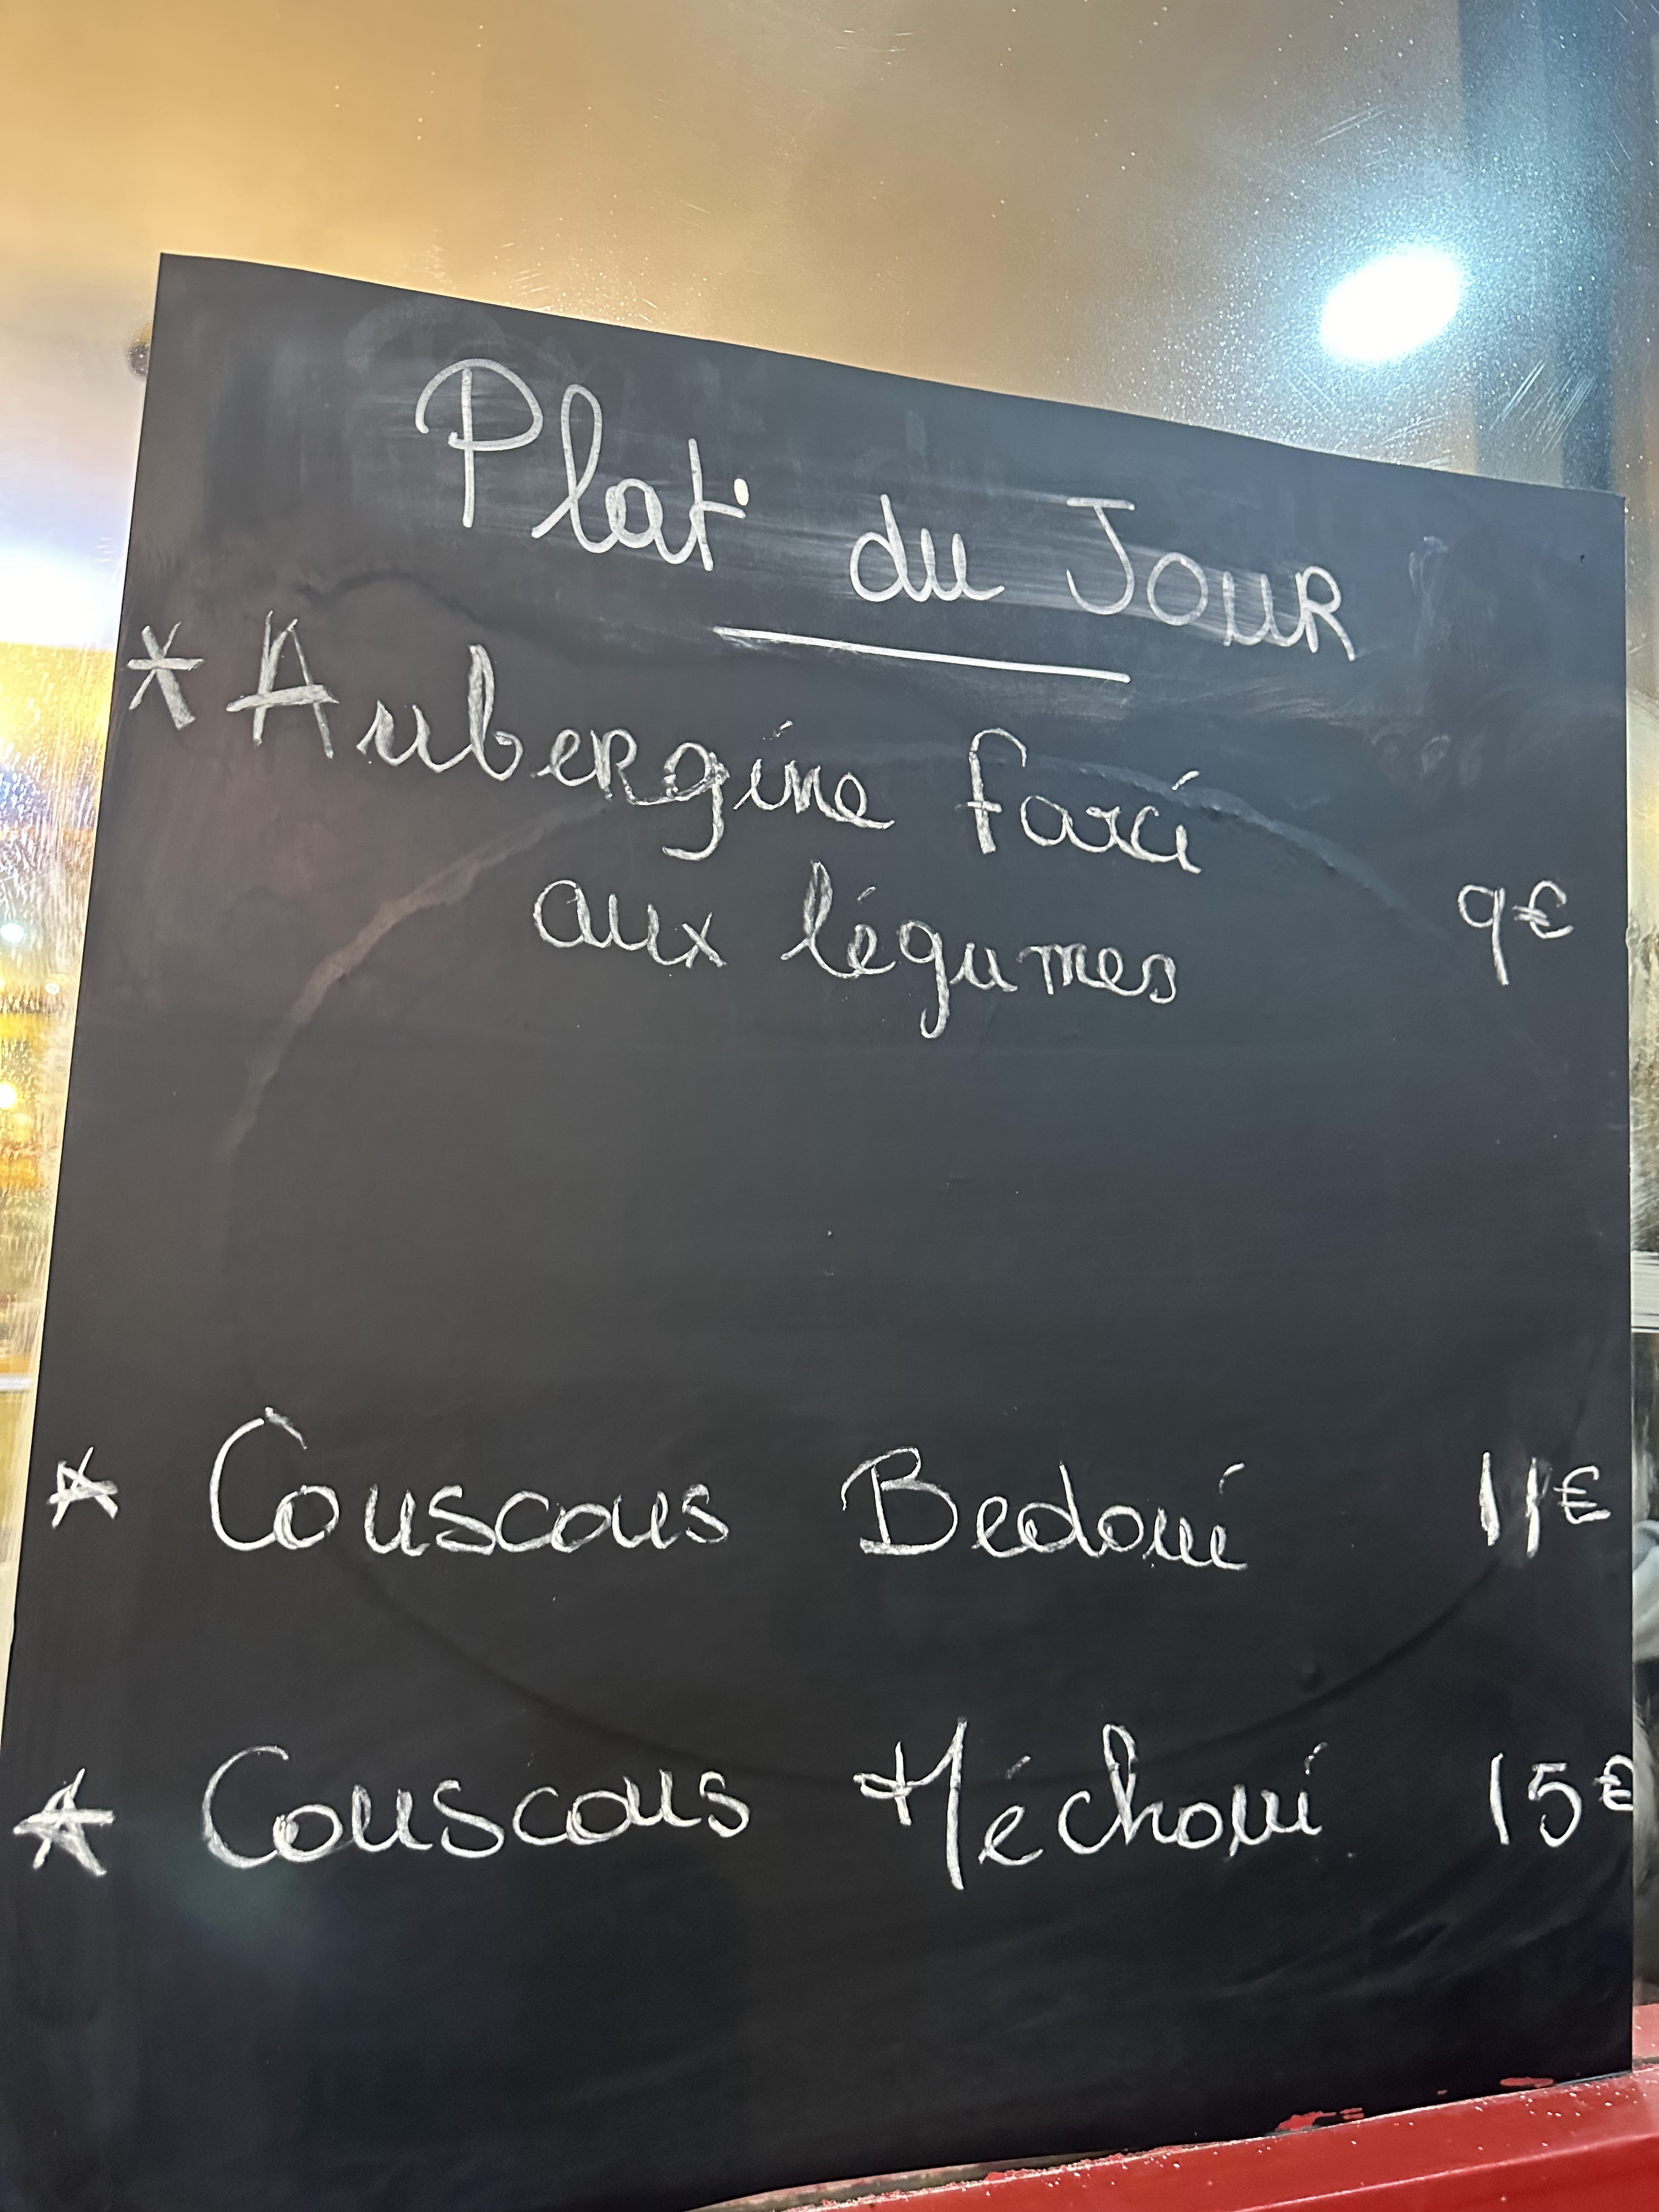 Plat du JOUR
* Aubergine farci
aux légumes 9€
* Couscous Bedoui 11€
* Couscous Méchoui 15€